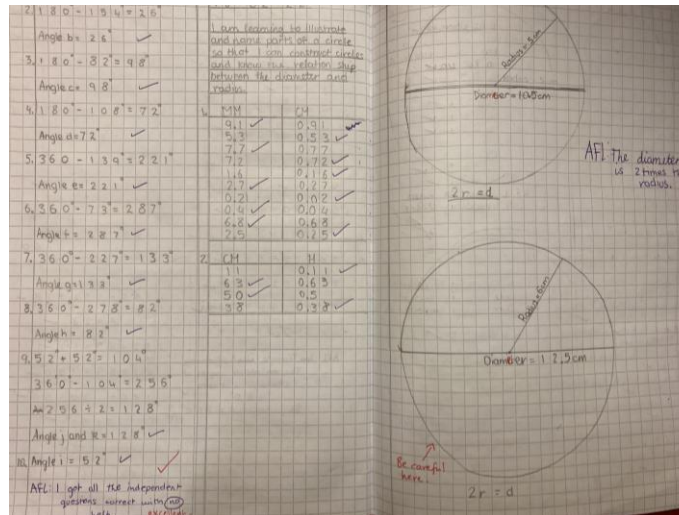 2. 180° - 154° = 26°
Angle b = 26°
3. 180° - 82° = 98°
Angle c = 98°
4. 180° - 108° = 72°
Angle d = 72°
5. 360° - 139° = 221°
Angle e = 221°
6. 360° - 73° = 287°
Angle f = 287°
7. 360° - 227° = 133°
Angle g = 133°
8. 360° - 278° = 82°
Angle h = 82°
9. 52° + 52° = 104°
360° - 104° = 256°
256 ÷ 2 = 128°
Angle j and k = 128°
10. Angle i = 52°
AFL: I got all the independent
questions correct with no
help excellent
I am learning to illustrate
and name parts of a circle
so that I can construct circles
and know the relation ship
between the diameter and
radius.
1. MM CM
9.1 0.91
5.3 0.53
7.7 0.77
7.2 0.72
1.6 0.16
2.7 0.27
0.2 0.02
0.4 0.04
6.8 0.68
2.5 0.25
2. CM M
11 0.11
63 0.63
50 0.5
38 0.38
Radius = 5cm
Diameter = 10.5cm
2r = d
AFL The diameter
is 2 times
radius.
Radius = 6cm
Diameter = 12.5cm
Be careful
here.
2r = d